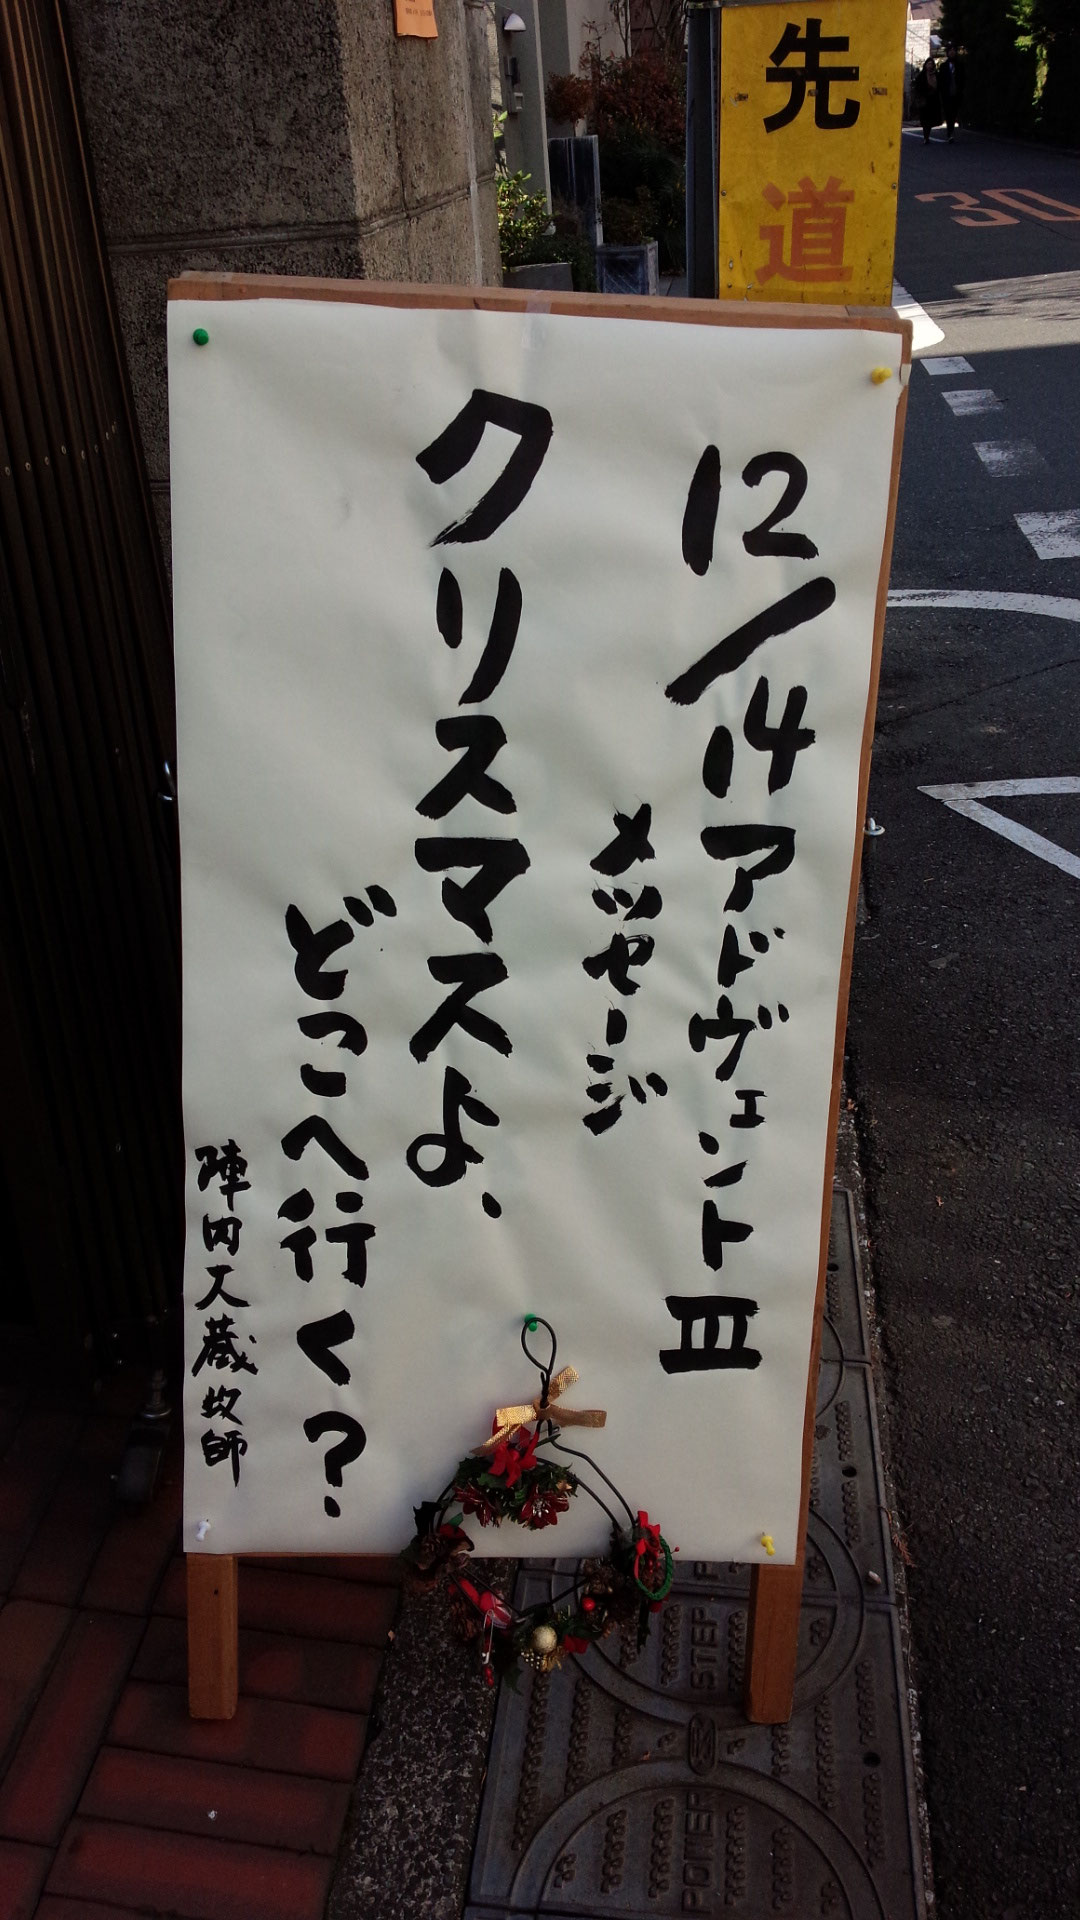 12/14アドヴェントⅢ
メッセージ
クリスマスよ、
どこへ行く?
陣内大蔵牧師
先
道
30
STEP
POWER